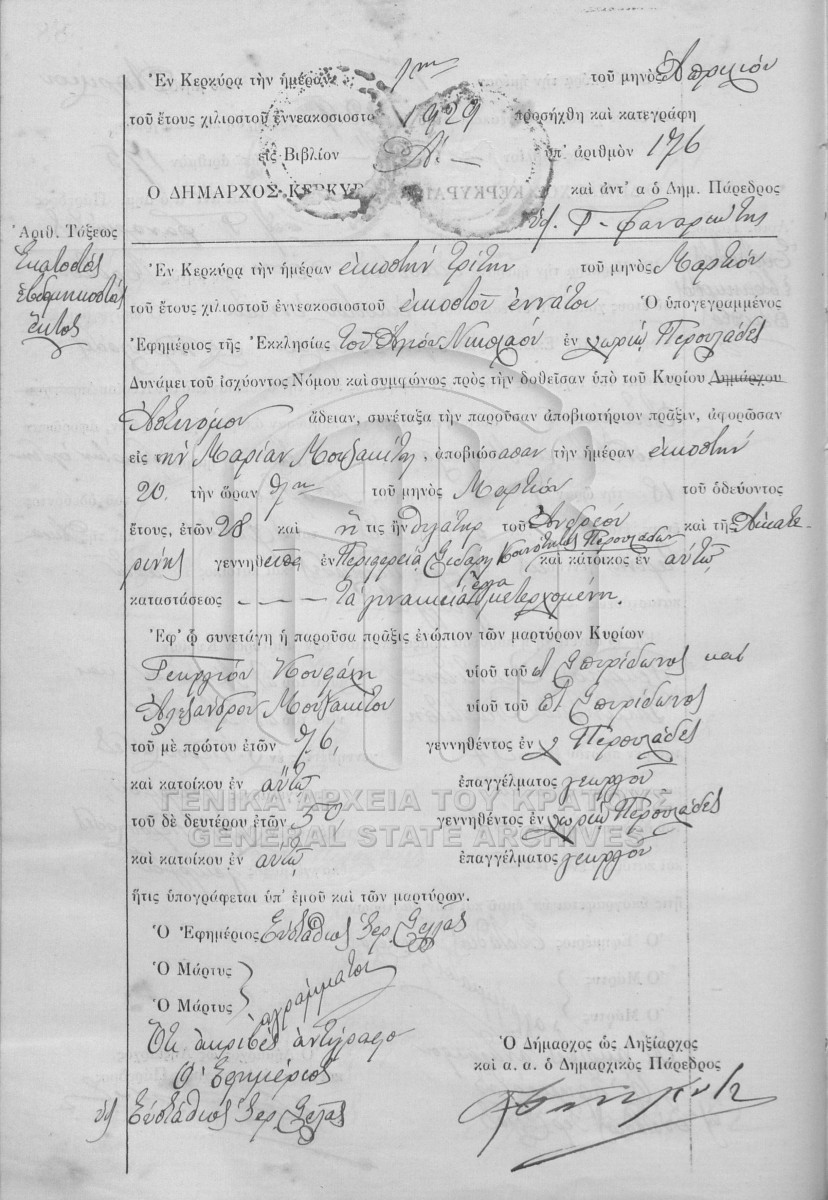 Ἐν Κερκύρᾳ τὴν ἡμέραν 1ην τοῦ μηνὸς Ἀπριλίου
τοῦ ἔτους χιλιοστοῦ ἐννεακοσιοστοῦ 1929 προσήχθη καὶ κατεγράφη
εἰς Βιβλίον Α΄. — ὑπ' ἀριθμὸν 176
Ο ΔΗΜΑΡΧΟΣ ΚΕΡΚΥΡ καὶ ἀντ' α ὁ Δημ. Πάρεδρος
Γ. Φαναριώτης
Ἀριθ. Τάξεως
Ἑκατοστὸς
ἑβδομηκοστὸς
ἕκτος
Ἐν Κερκύρᾳ τὴν ἡμέραν εἰκοστὴν τρίτην τοῦ μηνὸς Μαρτίου
τοῦ ἔτους χιλιοστοῦ ἐννεακοσιοστοῦ εἰκοστοῦ ἐννάτου Ὁ ὑπογεγραμμένος
Ἐφημέριος τῆς Ἐκκλησίας τοῦ Ἁγίου Νικολάου ἐν χωρίῳ Περουλάδες
Δυνάμει τοῦ ἰσχύοντος Νόμου καὶ συμφώνως πρὸς τὴν δοθεῖσαν ὑπὸ τοῦ Κυρίου Δημάρχου
Ἀστυνόμου ἄδειαν, συνέταξα τὴν παροῦσαν ἀποβιωτήριον πρᾶξιν, ἀφορῶσαν
εἰς τὴν Μαρίαν Μουζακίτη, ἀποβιώσασαν τὴν ἡμέραν εἰκοστὴν
20. τὴν ὥραν 9ην τοῦ μηνὸς Μαρτίου τοῦ ὁδεύοντος
ἔτους, ἐτῶν 28 καὶ ἥ τις ἦν θυγάτηρ τοῦ Ἀνδρέου καὶ τῆς Αἰκατε-
ρίνης γεννηθεῖσα ἐν Περιφερείᾳ Σιδάρι Κοινότητος Περουλάδων καὶ κάτοικος ἐν αὐτῷ
καταστάσεως — — — τὰ γυναικεῖα ἔργα μετερχομένη.
Ἐφ' ᾧ συνετάγη ἡ παροῦσα πρᾶξις ἐνώπιον τῶν μαρτύρων Κυρίων
Γεωργίου υἱοῦ τοῦ Σπυρίδωνος καὶ
Ἀλεξάνδρου Μουζακίτου υἱοῦ τοῦ Σπυρίδωνος
τοῦ μὲ πρώτου ἐτῶν 76, γεννηθέντος ἐν χ Περουλάδες
καὶ κατοίκου ἐν αὐτῷ ἐπαγγέλματος γεωργοῦ
ΓΕΝΙΚΑ ΑΡΧΕΙΑ ΤΟΥ ΚΡΑΤΟΥΣ
τοῦ δὲ δευτέρου ἐτῶν 50, γεννηθέντος ἐν χωρίῳ Περουλάδες
GENERAL STATE ARCHIVES
καὶ κατοίκου ἐν αὐτῷ ἐπαγγέλματος γεωργοῦ
ἥτις ὑπογράφεται ὑπ' ἐμοῦ καὶ τῶν μαρτύρων.
Ὁ Ἐφημέριος Εὐστάθιος Ἱερ. Σελλᾶς
Ὁ Μάρτυς
ἀγράμματοι
Ὁ Μάρτυς
Ὅτι ἀκριβὲς ἀντίγραφο
Ὁ Ἐφημέριος
Εὐστάθιος Ἱερ. Σελλᾶς
Ὁ Δήμαρχος ὡς Ληξίαρχος
καὶ α. α. ὁ Δημαρχικὸς Πάρεδρος